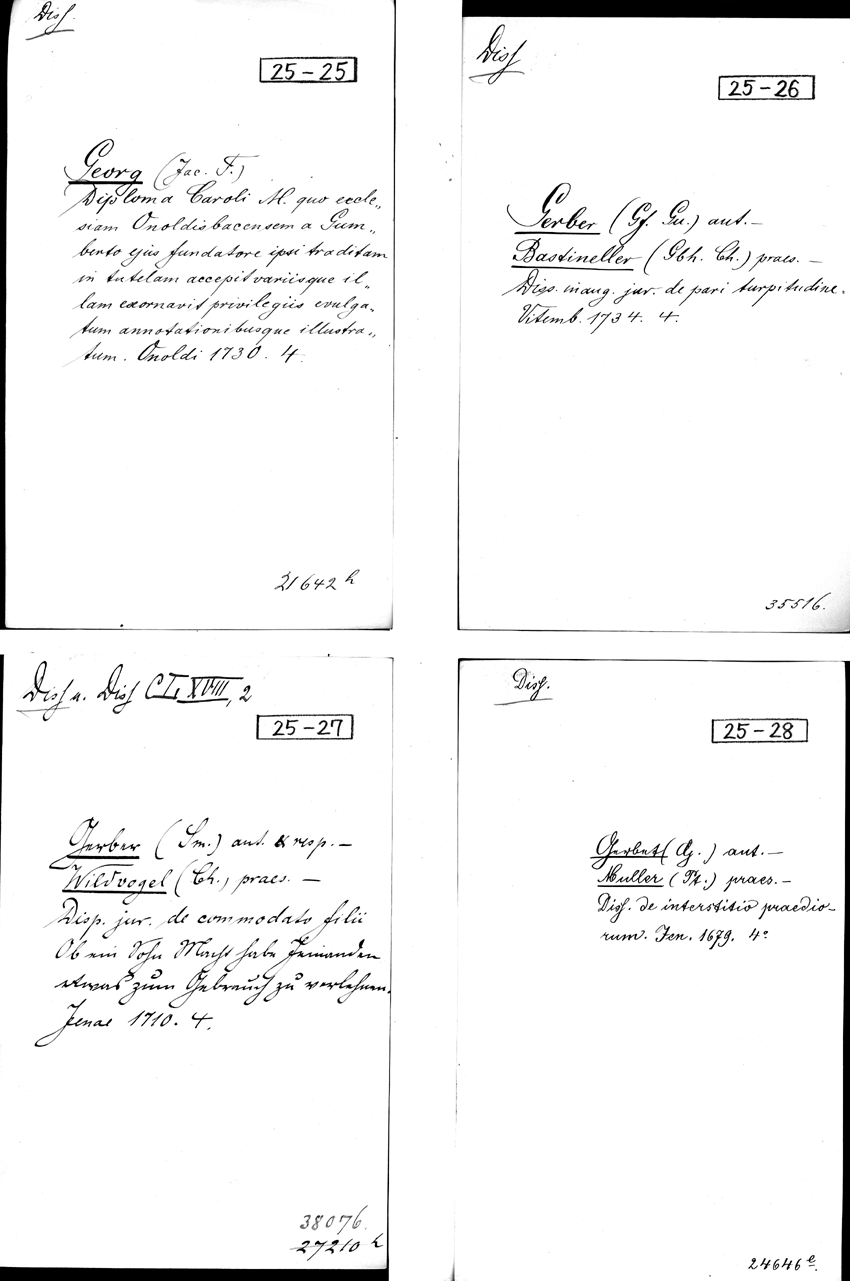 Diss.
25-25
Georg (Jac. F.)
Diploma Caroli M. quo eccle„
siam Onoldisbacensem a Gum„
berto ejus fundatore ipsi traditam
in tutelam accepit variisque il„
lam exornavit privilegiis evulga„
tum annotationibusque illustra„
tum. Onoldi 1730. 4.
21642 h
Diss
25-26
Gerber (Gf. Gu.) aut. —
Bastineller (Gbh. Ch.) praes. —
Diss. inaug. jur. de pari turpitudine.
Vitemb. 1734. 4.
35516.
Diss u. Diss CL XVIII, 2
25-27
Gerber (Sm.) aut. & resp. —
Wildvogel (Ch.) praes. —
Disp. jur. de commodato filii
Ob ein Sohn Macht habe Jemanden
etwas zum Gebrauch zu verlehnen.
Jenae 1710. 4.
38076.
27210 h
Diss.
25-28
Gerbet ( ) aut. —
Müller (Pt.) praes. —
Diss. de interstitio praedio-
rum. Jen. 1679. 4°
24646 e.